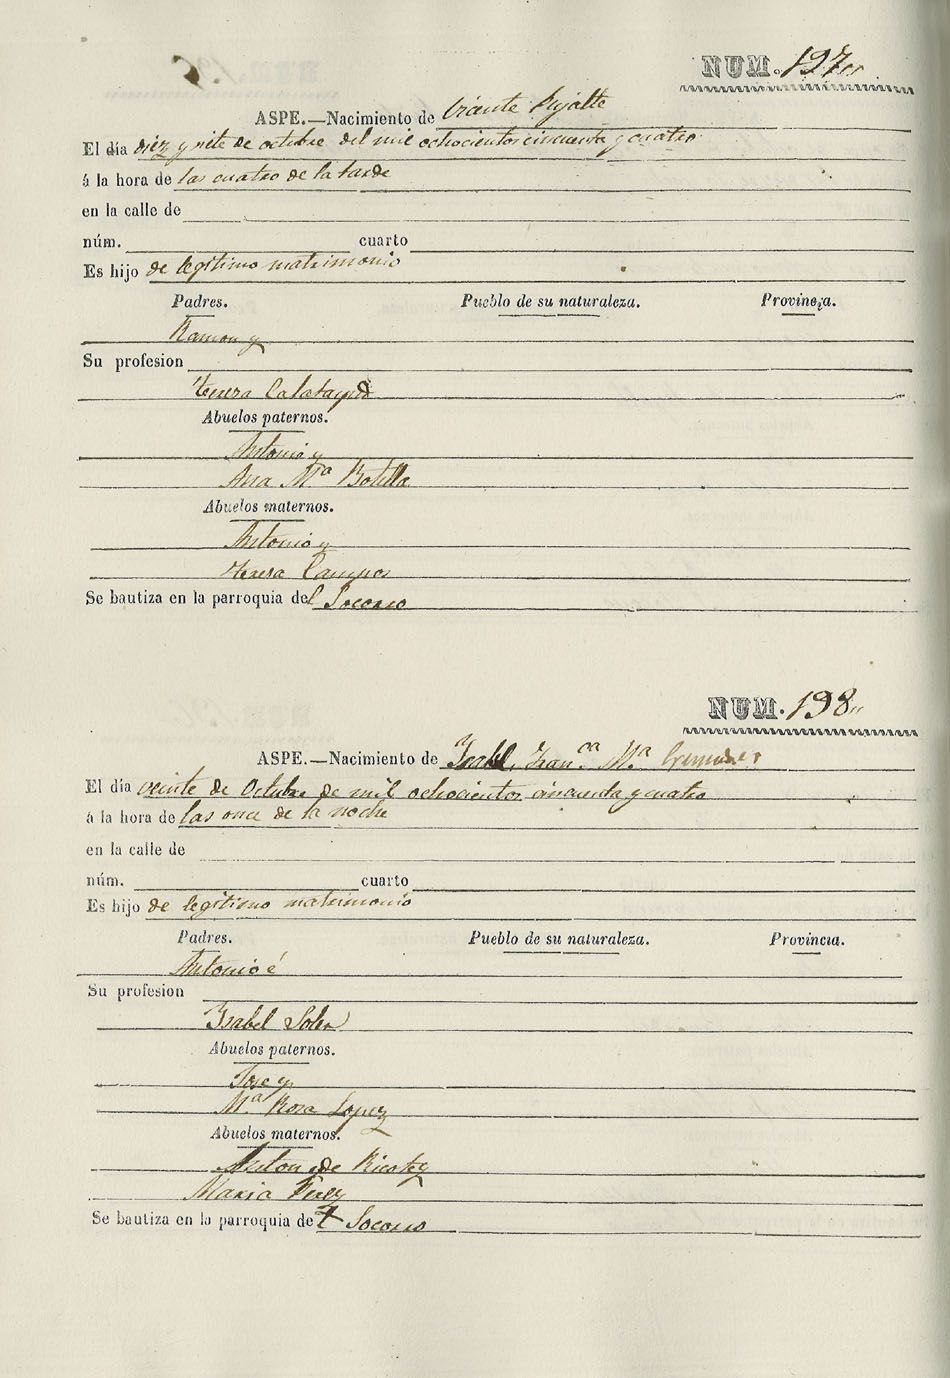 NUM. 197
ASPE.—Nacimiento de Vicente Pujalte
El día diez y siete de octubre del mil ochocientos cincuenta y cuatro
á la hora de las cuatro de la tarde
en la calle de
núm. cuarto
Es hijo de legitimo matrimonio
Padres. Pueblo de su naturaleza. Provincia.
Ramon y
Su profesion
Teresa Calatayud
Abuelos paternos.
Antonio y
Ana Mª Botella
Abuelos maternos.
Antonio y
Teresa Campos
Se bautiza en la parroquia del Socorro
NUM. 198
ASPE.—Nacimiento de Isabel, Franᶜᵃ Mª
El día veinte de Octubre de mil ochocientos cincuenta y cuatro
á la hora de las once de la noche
en la calle de
núm. cuarto
Es hijo de legitimo matrimonio
Padres. Pueblo de su naturaleza. Provincia.
Antonio é
Su profesion
Isabel Soler
Abuelos paternos.
Jose y
Mª Rosa Lopez
Abuelos maternos.
de
Maria Perez
Se bautiza en la parroquia del Socorro